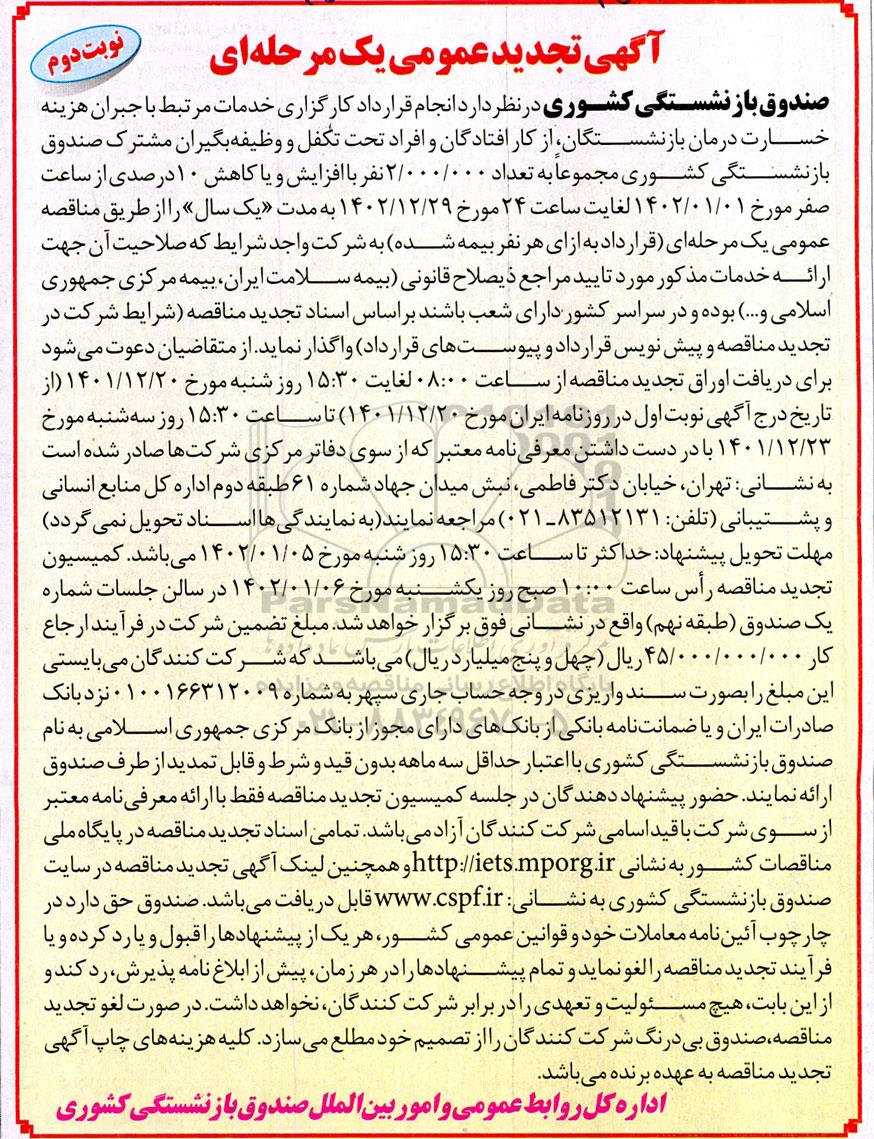 نوبت دوم
آگهی تجدید عمومی یک مرحله‌ای
صندوق بازنشستگی کشوری در نظر دارد انجام قرارداد کارگزاری خدمات مرتبط با جبران هزینه
خسارت درمان بازنشستگان، از کار افتادگان و افراد تحت تکفل و وظیفه‌بگیران مشترک صندوق
بازنشستگی کشوری مجموعاً به تعداد ۲/۰۰۰/۰۰۰ نفر با افزایش و یا کاهش ۱۰درصدی از ساعت
صفر مورخ ۱۴۰۲/۰۱/۰۱ لغایت ساعت ۲۴ مورخ ۱۴۰۲/۱۲/۲۹ به مدت «یک سال» را از طریق مناقصه
عمومی یک مرحله‌ای (قرارداد به ازای هر نفر بیمه شده) به شرکت واجد شرایط که صلاحیت آن جهت
ارائه خدمات مذکور مورد تایید مراجع ذیصلاح قانونی (بیمه سلامت ایران، بیمه مرکزی جمهوری
اسلامی و...) بوده و در سراسر کشور دارای شعب باشند بر اساس اسناد تجدید مناقصه (شرایط شرکت در
تجدید مناقصه و پیش نویس قرارداد و پیوست‌های قرارداد) واگذار نماید. از متقاضیان دعوت می‌شود
برای دریافت اوراق تجدید مناقصه از ساعت ۰۸:۰۰ لغایت ۱۵:۳۰ روز شنبه مورخ ۱۴۰۱/۱۲/۲۰ (از
تاریخ درج آگهی نوبت اول در روزنامه ایران مورخ ۱۴۰۱/۱۲/۲۰) تا ساعت ۱۵:۳۰ روز سه‌شنبه مورخ
۱۴۰۱/۱۲/۲۳ با در دست داشتن معرفی‌نامه معتبر که از سوی دفاتر مرکزی شرکت‌ها صادر شده است
به نشانی: تهران، خیابان دکتر فاطمی، نبش میدان جهاد شماره ۶۱ طبقه دوم اداره کل منابع انسانی
و پشتیبانی (تلفن: ۸۳۵۱۲۱۳۱-۰۲۱) مراجعه نمایند(به نمایندگی‌ها اسناد تحویل نمی گردد)
مهلت تحویل پیشنهاد: حداکثر تا ساعت ۱۵:۳۰ روز شنبه مورخ ۱۴۰۲/۰۱/۰۵ می‌باشد. کمیسیون
تجدید مناقصه رأس ساعت ۱۰:۰۰ صبح روز یکشنبه مورخ ۱۴۰۲/۰۱/۰۶ در سالن جلسات شماره
یک صندوق (طبقه نهم) واقع در نشانی فوق برگزار خواهد شد. مبلغ تضمین شرکت در فرآیند ارجاع
کار ۴۵/۰۰۰/۰۰۰/۰۰۰ ریال (چهل و پنج میلیارد ریال) می‌باشد که شرکت کنندگان می‌بایستی
این مبلغ را بصورت سند واریزی در وجه حساب جاری سپهر به شماره ۰۱۰۰۱۶۶۳۱۲۰۰۹ نزد بانک
صادرات ایران و یا ضمانت‌نامه بانکی از بانک‌های دارای مجوز از بانک مرکزی جمهوری اسلامی به نام
صندوق بازنشستگی کشوری با اعتبار حداقل سه ماهه بدون قید و شرط و قابل تمدید از طرف صندوق
ارائه نمایند. حضور پیشنهاد دهندگان در جلسه کمیسیون تجدید مناقصه فقط با ارائه معرفی‌نامه معتبر
از سوی شرکت با قید اسامی شرکت کنندگان آزاد می‌باشد. تمامی اسناد تجدید مناقصه در پایگاه ملی
مناقصات کشور به نشانی http://iets.mporg.ir و همچنین لینک آگهی تجدید مناقصه در سایت
صندوق بازنشستگی کشوری به نشانی: www.cspf.ir قابل دریافت می‌باشد. صندوق حق دارد در
چارچوب آئین‌نامه معاملات خود و قوانین عمومی کشور، هر یک از پیشنهادها را قبول و یا رد کرده و یا
فرآیند تجدید مناقصه را لغو نماید و تمام پیشنهادها را در هر زمان، پیش از ابلاغ نامه پذیرش، رد کند و
از این بابت، هیچ مسئولیت و تعهدی را در برابر شرکت کنندگان، نخواهد داشت. در صورت لغو تجدید
مناقصه، صندوق بی‌درنگ شرکت کنندگان را از تصمیم خود مطلع می‌سازد. کلیه هزینه‌های چاپ آگهی
تجدید مناقصه به عهده برنده می‌باشد.
اداره کل روابط عمومی و امور بین الملل صندوق بازنشستگی کشوری
ParsNamadData
پایگاه اطلاع رسانی مناقصه و مزایده
۰۲۱-۸۸۳۴۹۶۷۰-۵